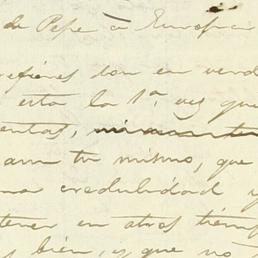 de Pepe à Europa
refieres son en verd
esta la 1ª. vez que
entas,
aun tu mismo, que
na credulidad y
tener en otros tiemp
s bien, y que no